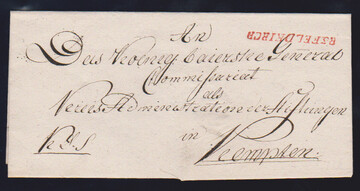 An
R.3.FELDKIRCH
Das Koenig: baierske General
Commissariat
als
Kreis Administration der Stiftungen
in
Kempten.